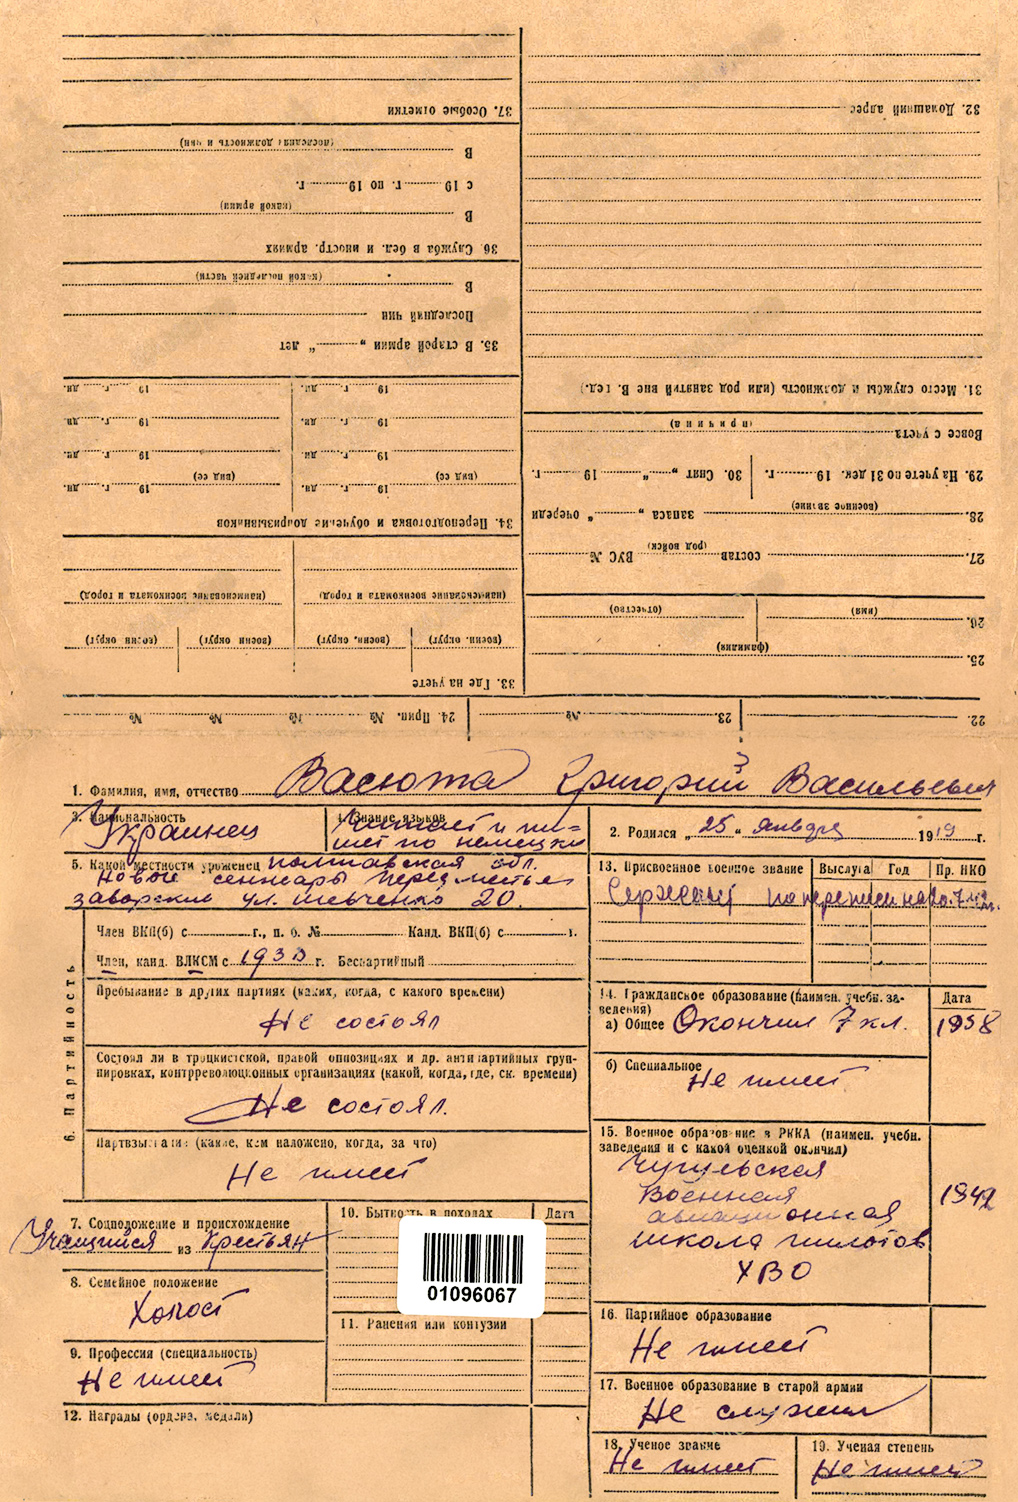 1. Фамилия, имя, отчество Васюта Григорий Васильевич
3. Национальность Украинец
4. Знание языков Читает и пи-
шет по немецки
2. Родился „25“ января 1919 г.
5. Какой местности уроженец полтавская обл.
Новые сенжары
заворскло ул. шевченко 20.
6. Партийность
Член ВКП(б) с г., п. б. № Канд. ВКП(б) с г.
Член, канд. ВЛКСМ с г. Беспартийный
Пребывание в других партиях (каких, когда, с какого времени)
Не состоял
Состоял ли в троцкистской, правой оппозициях и др. антипартийных груп-
пировках, контрреволюционных организациях (какой, когда, где, ск. времени)
Не состоял.
Партвзыскания (какие, кем наложено, когда, за что)
Не имеет
7. Соцположение и происхождение
Учащийся из Крестьян
8. Семейное положение
Холост
9. Профессия (специальность)
Не имеет
10. Бытность в походах Дата
01096067
11. Ранения или контузии
12. Награды (ордена, медали)
13. Присвоенное военное звание Выслуга Год Пр. НКО
Сержант
14. Гражданское образование (наимен. учебн. за-
ведения) Дата
а) Общее Окончил 7 кл. 1938
б) Специальное
Не имеет
15. Военное образование в РККА (наимен. учебн.
заведения и с какой оценкой окончил)
Чугуевская
Военная
авиационная
школа пилотов
ХВО
1942
16. Партийное образование
Не имеет
17. Военное образование в старой армии
Не служил
18. Ученое звание
Не имеет
19. Ученая степень
Не имеет
22.
23. №
24. Прип. № № № №
25.
(фамилия)
26.
(имя) (отчество)
27. состав (род войск) ВУС №
28. (военное звание) запаса „ “ очереди
29. На учете по 31 дек. 19 г.
30. Снят „ “ 19 г.
Вовсе с учета
(причина)
31. Место службы и должность (или род занятий вне В. вед.)
32. Домашний адрес
33. Где на учете
(воен. округ) (воен. округ) (воен. округ) (воен. округ)
(наименование военкомата и город) (наименование военкомата и город)
34. Переподготовка и обучение допризывников
19 г. дн. 19 г. дн.
(вид сс) (вид сс)
19 г. дн. 19 г. дн.
19 г. дн. 19 г. дн.
19 г. дн. 19 г. дн.
35. В старой армии „ “ лет
Последний чин
В
(какой последней части)
36. Служба в бел. и иностр. армиях
В
(какой армии)
с 19 г. по 19 г.
В
(последняя должность и чин)
37. Особые отметки